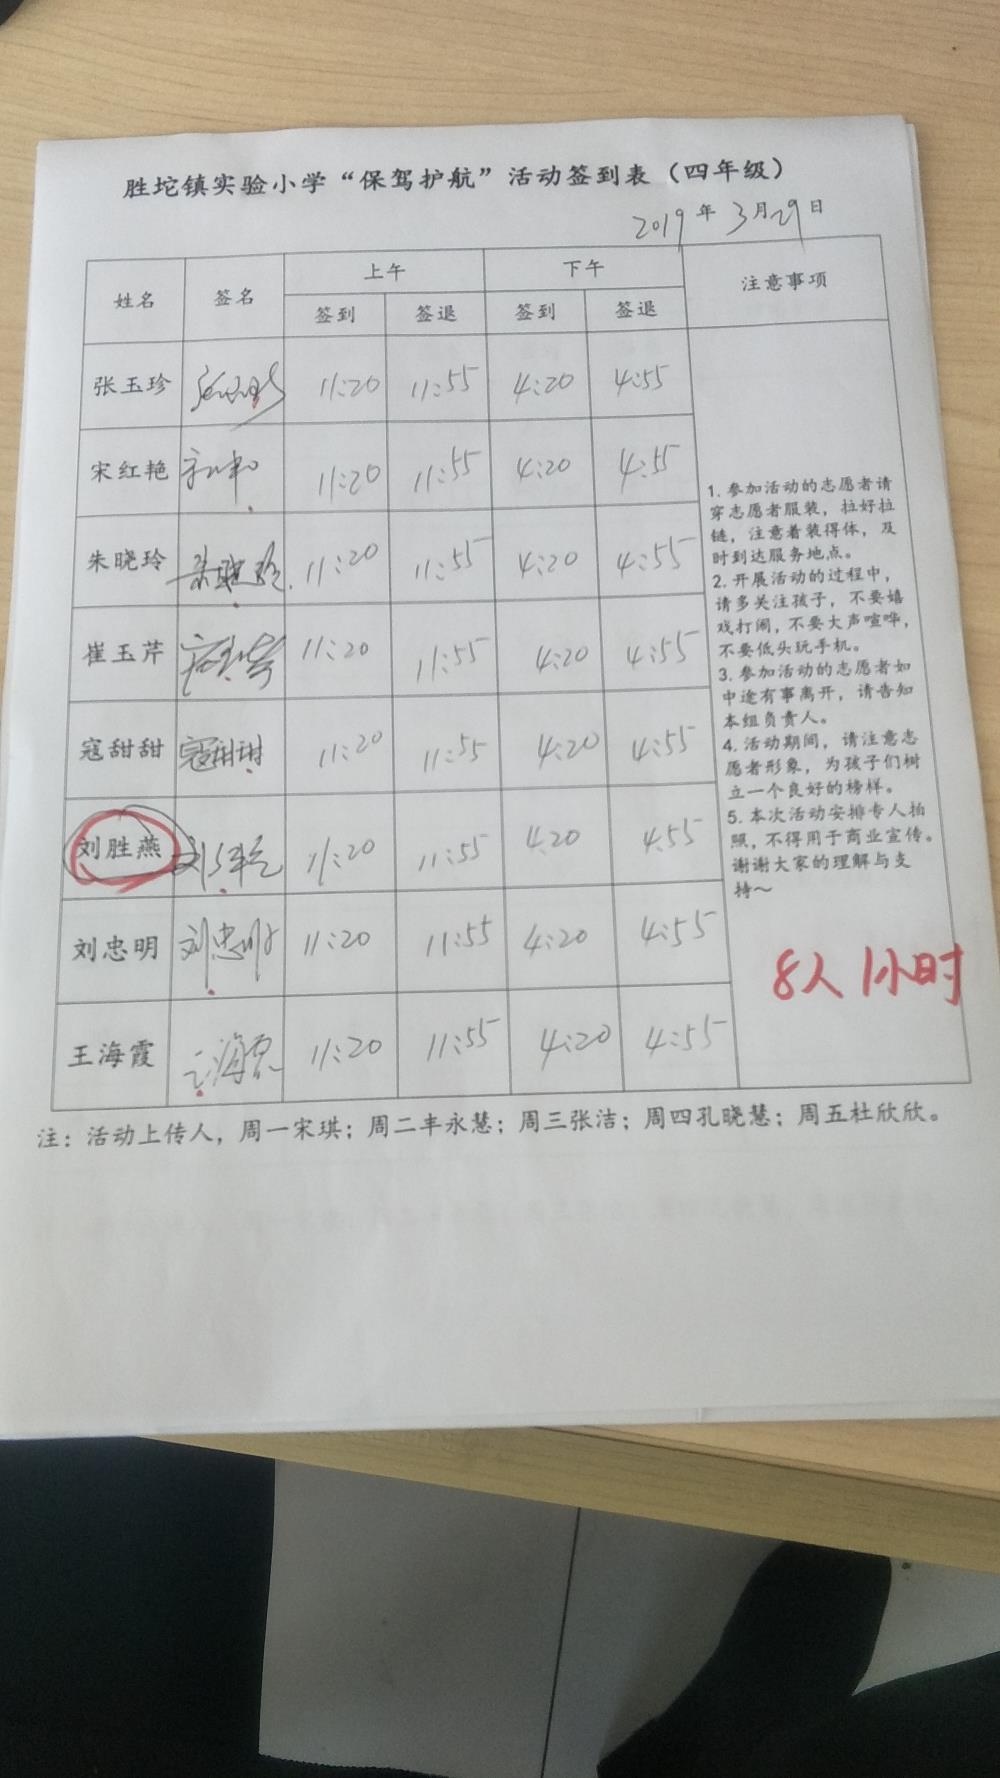 胜坨镇实验小学“保驾护航”活动签到表（四年级）
2019年3月29日
姓名 签名 上午 下午 注意事项
签到 签退 签到 签退
张玉珍 11:20 11:55 4:20 4:55
宋红艳 11:20 11:55 4:20 4:55
朱晓玲 朱晓玲 11:20 11:55 4:20 4:55
崔玉芹 崔玉芹 11:20 11:55 4:20 4:55
寇甜甜 寇甜甜 11:20 11:55 4:20 4:55
刘胜燕 11:20 11:55 4:20 4:55
刘忠明 刘忠明 11:20 11:55 4:20 4:55
王海霞 王海霞 11:20 11:55 4:20 4:55
1. 参加活动的志愿者请
穿志愿者服装，拉好拉
链，注意着装得体，及
时到达服务地点。
2. 开展活动的过程中，
请多关注孩子，不要嬉
戏打闹，不要大声喧哗，
不要低头玩手机。
3. 参加活动的志愿者如
中途有事离开，请告知
本组负责人。
4. 活动期间，请注意志
愿者形象，为孩子们树
立一个良好的榜样。
5. 本次活动安排专人拍
照，不得用于商业宣传。
谢谢大家的理解与支
持～
8人1小时
注：活动上传人，周一宋琪；周二丰永慧；周三张洁；周四孔晓慧；周五杜欣欣。